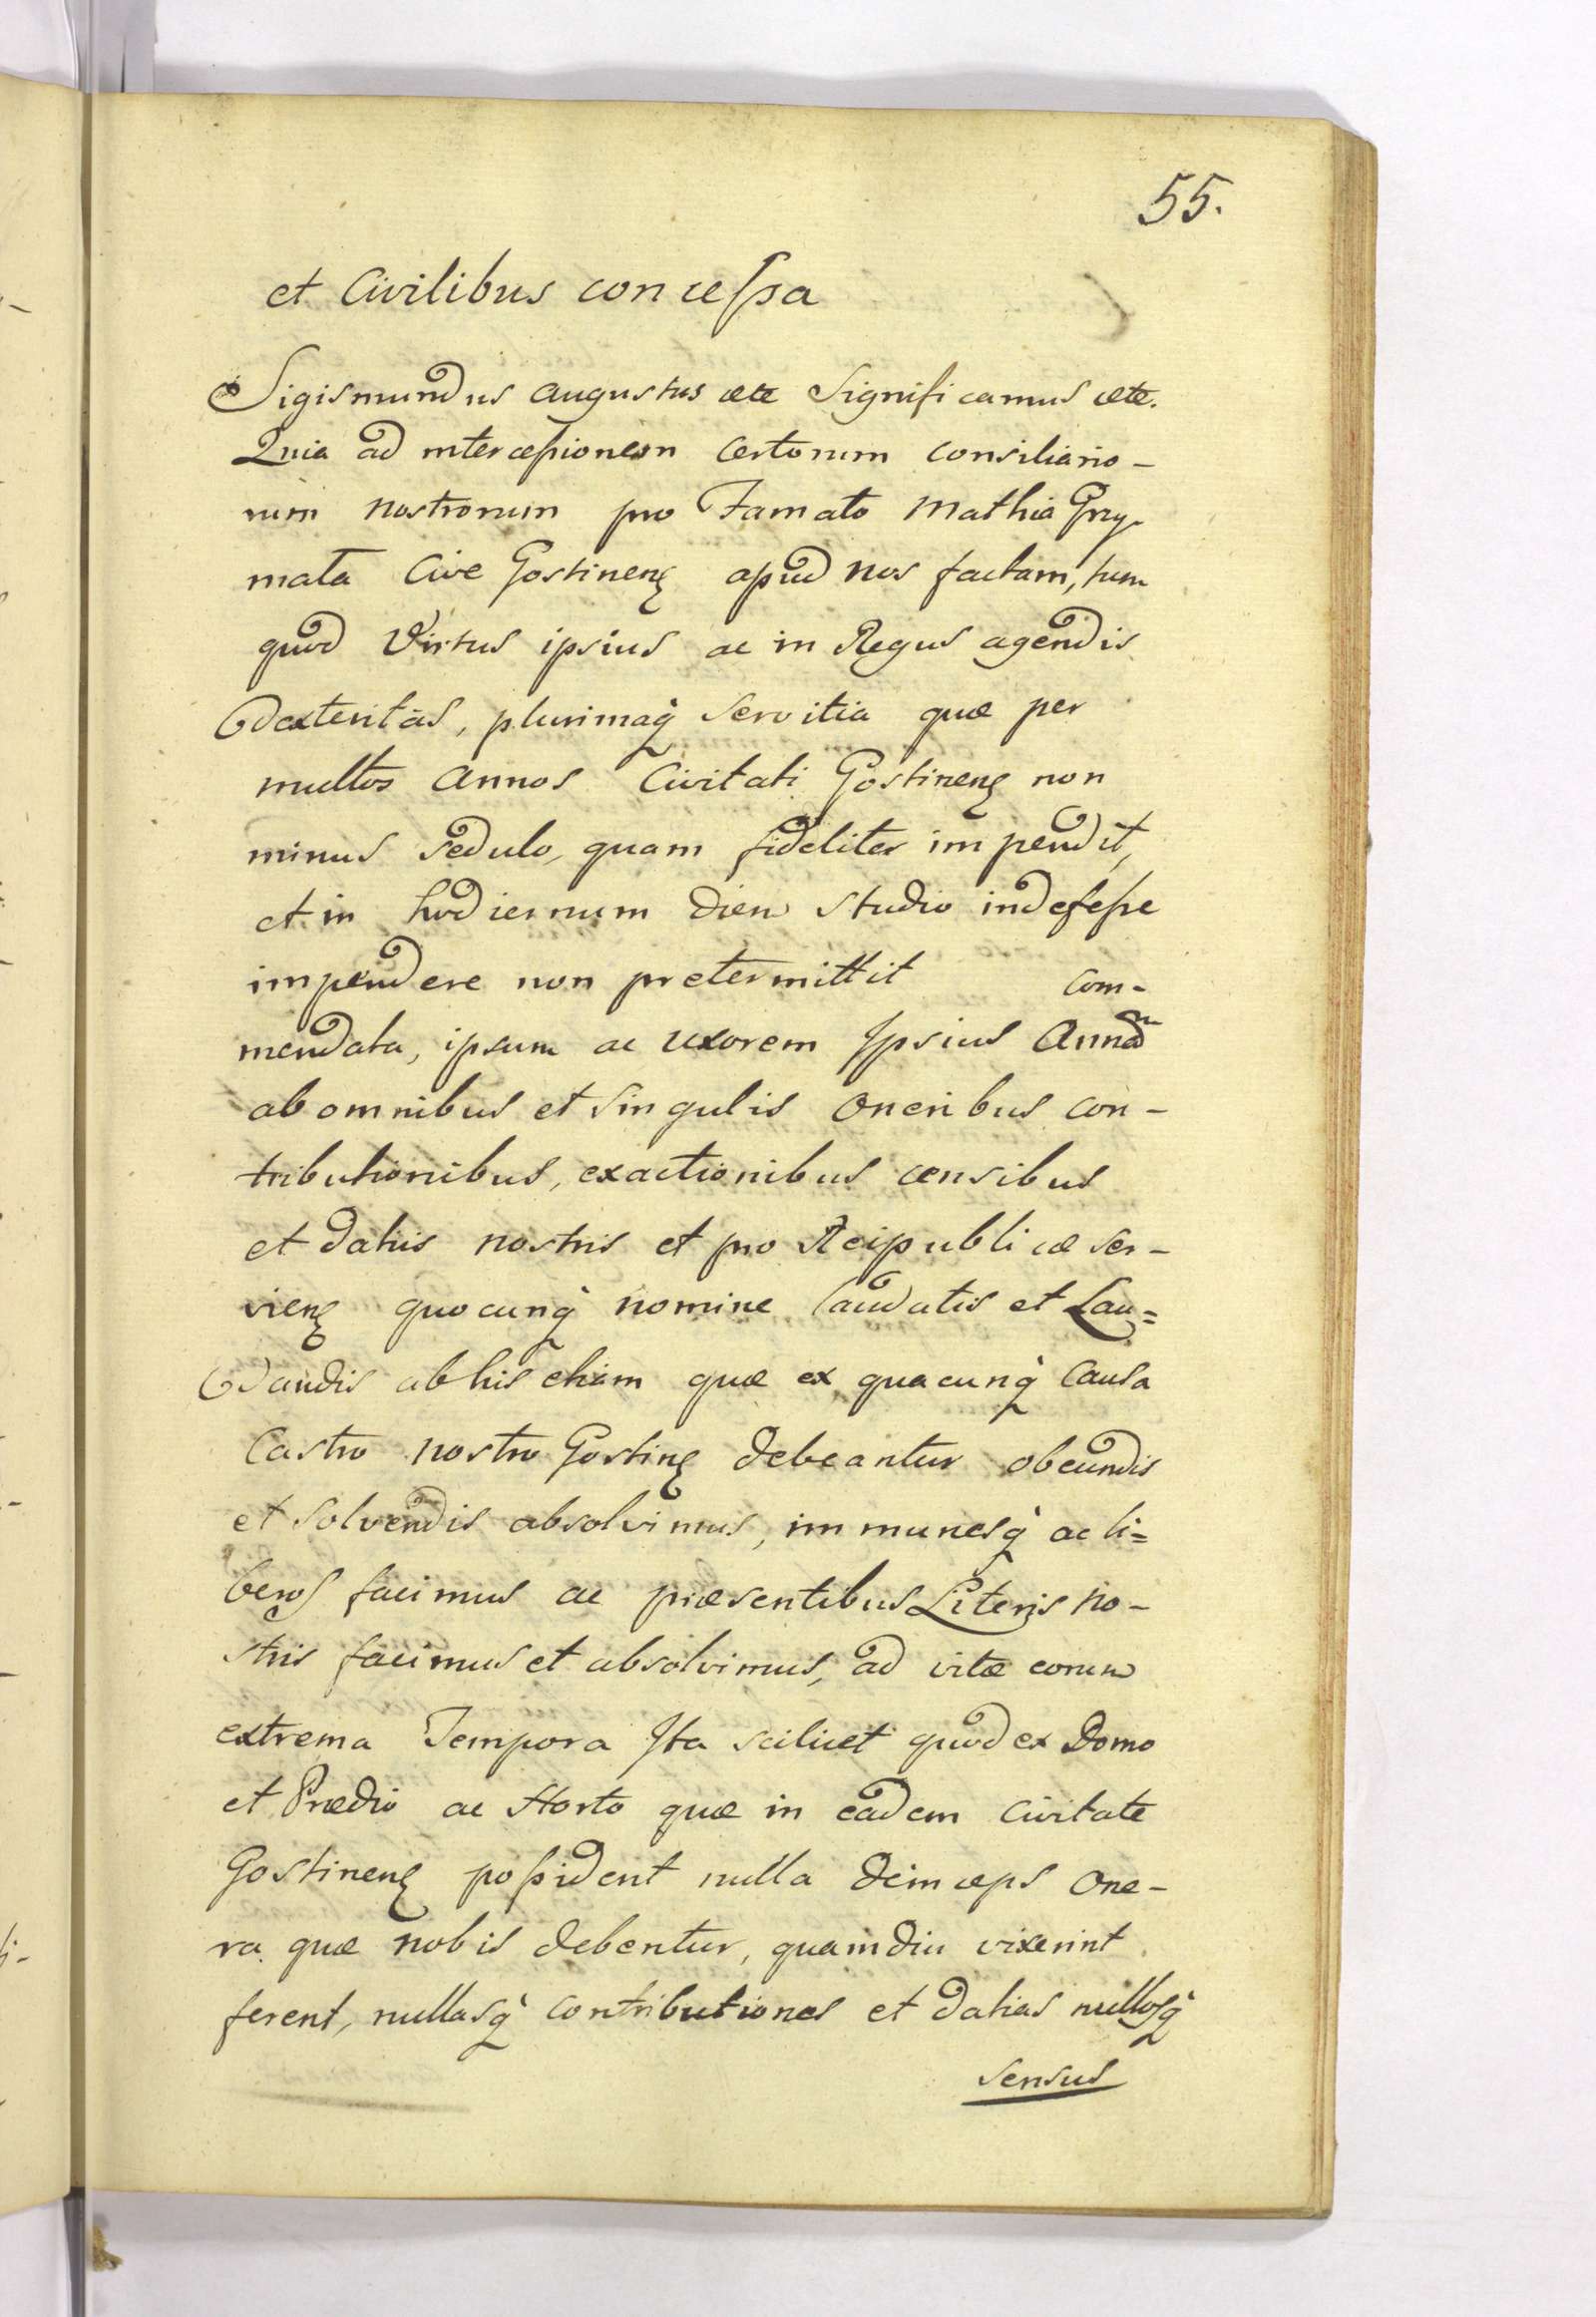 55.
et Civilibus concessa
Sigismundus Augustus etc Significamus etc.
Quia ad intercessionem certorum consiliario-
rum nostrorum pro Famato Mathia Grzy-
mata Cive Gostinens apud nos factam, tum
quod Virtus ipsius ac in Regiis agendis
dexteritas, plurimaq servitia quæ per
multos Annos Civitati Gostinens non
minus sedulo, quam fideliter impendit,
et in hodiernum diem studio indefesse
impendere non pretermittit com-
mendata, ipsum ac uxorem Ipsius Annam
ab omnibus et singulis oneribus con-
tributionibus, exactionibus censibus
et datiis nostris et pro Reipublicæ ser-
viens quocunq nomine laudatis et Lau=
dandis ab his etiam quæ ex quacunq causa
Castro nostro Gostins debeantur obeundis
et solvendis absolvimus, immunesq ac li=
beros facimus ac præsentibus Literis no-
stris facimus et absolvimus, ad vitæ eorum
extrema Tempora Ita scilicet quod ex Domo
et Prædio ac Horto quæ in eadem Civitate
Gostinens possident nulla deinceps one-
ra quæ nobis debentur, quamdiu vixerint
ferent, nullasq contributiones et datias nullosq
sensus